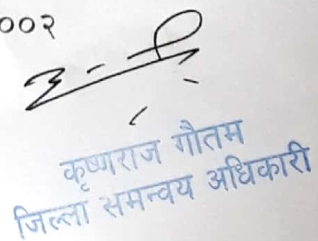 ००२
कृष्णराज गौतम
जिल्ला समन्वय अधिकारी